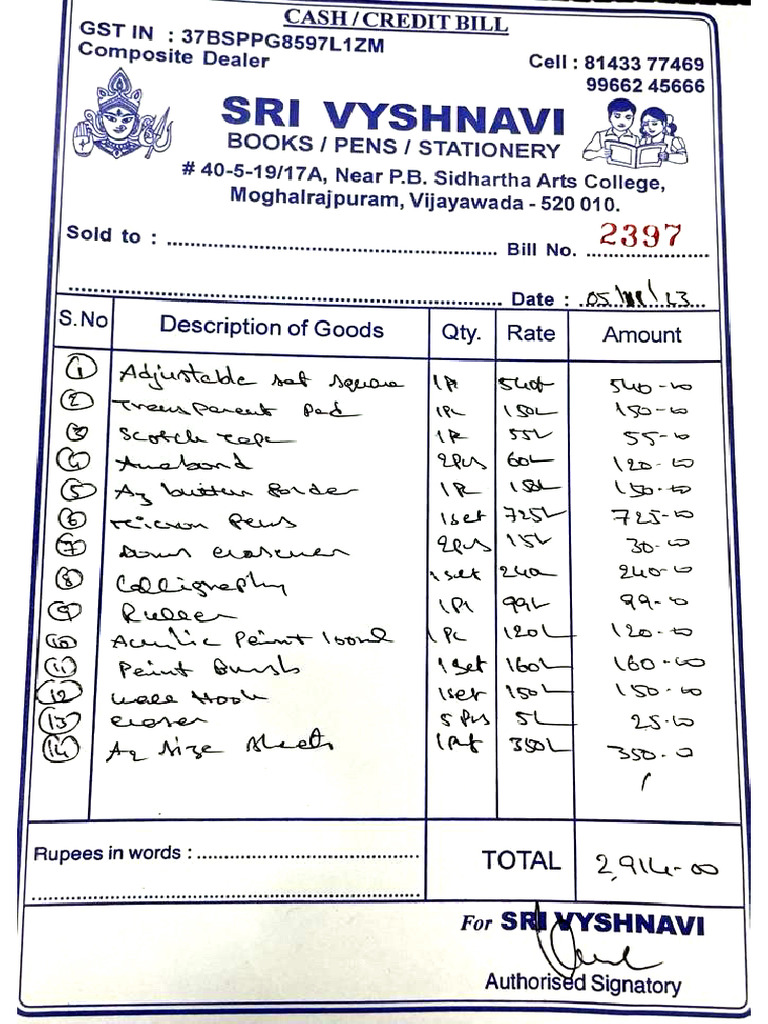 CASH / CREDIT BILL
GST IN : 37BSPPG8597L1ZM
Composite Dealer
Cell : 81433 77469
99662 45666
SRI VYSHNAVI
BOOKS / PENS / STATIONERY
# 40-5-19/17A, Near P.B. Sidhartha Arts College,
Moghalrajpuram, Vijayawada - 520 010.
Sold to : Bill No. 2397
Date : 05/11/23
S.No Description of Goods Qty. Rate Amount
1 Adjustable set square 1P 540 540-00
2 Transparent Pad 1Pc 150 150-00
3 Scotch Tape 1P 55 55-00
4 Anabond 2Pcs 60 120-00
5 A2 butter 1P 150 150-00
6 micron Pens 1set 725 725-00
7 2Pcs 15 30-00
8 Calligraphy 1set 240 240-00
9 Ruller 1Pc 99 99-00
10 Acrilic Peint 100ml 1Pc 120 120-00
11 Peint Brush 1set 160 160-00
12 wall Hook 1set 150 150-00
13 5 Pcs 5 25-00
14 A2 size sheets 1Pkt 350 350-00
Rupees in words : TOTAL 2,914-00
For SRI VYSHNAVI
Authorised Signatory